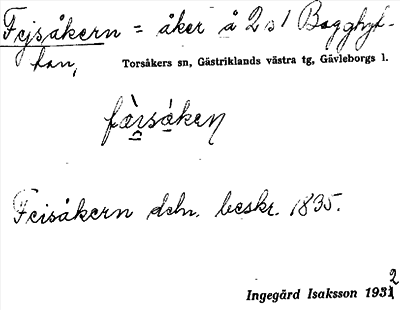 Fejsåkern = åker å 2 s 1 Bagghyt-
tan, Torsåkers sn, Gästriklands västra tg, Gävleborgs l.
fæ̀rsåken
Feisåkern deln. beskr. 1835.
Ingegärd Isaksson 1932